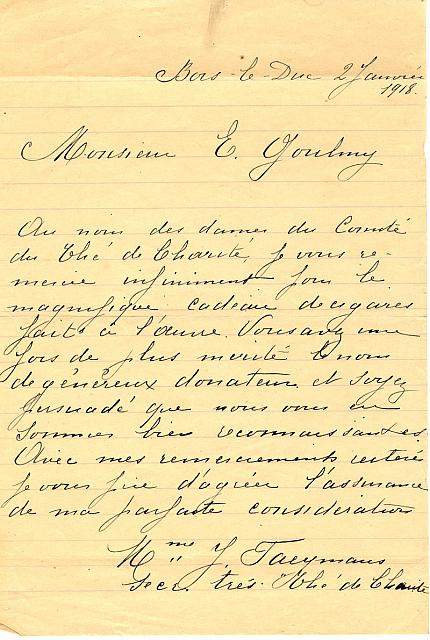 Bois-le-Duc 2 Janvier
1918.
Monsieur E. Goulmy
Au nom des dames du Comité
du Thé de Charité, je vous re-
mercie infiniment pour le
magnifique cadeau de cigares
fait à l'œuvre. Vous avez une
fois de plus mérité le nom
de généreux donateur et soyez
persuadé que nous vous en
sommes bien reconnaissantes.
Avec mes remerciements réitérés
je vous prie d'agréer l'assurance
de ma parfaite considération
Mme J. Taeymans
Secr. très. Thé de Charité